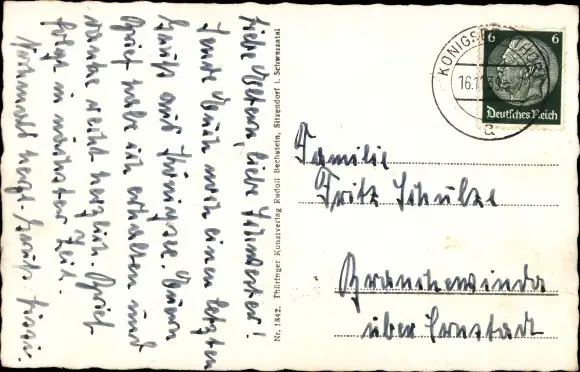 Liebe Eltern, liebe Schwester!
Sende Euch noch einen letzten
Gruß aus Königsee. Euern
Brief habe ich erhalten und
danke recht herzlich. Brief
folgt in nächster Zeit.
Nochmals herzl. Gruß
Nr. 1842. Thüringer Kunstverlag Rudolf Bechstein, Sitzendorf i. Schwarzatal
KÖNIGSEE (THÜR)
16.11
a
6 6
Deutsches Reich
Familie
Fritz Schulze
Branchewinda
über Arnstadt